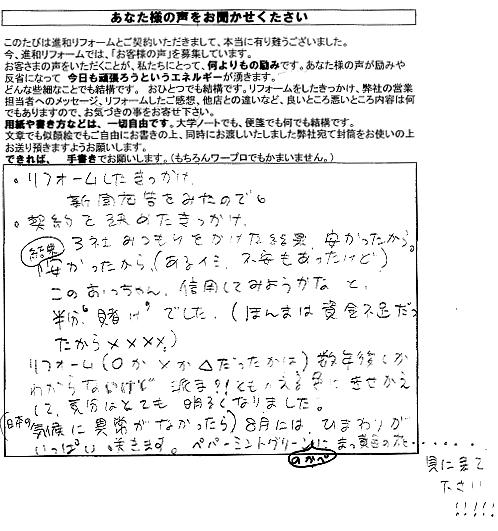 あなた様の声をお聞かせください
このたびは進和リフォームとご契約いただきまして、本当に有り難うございました。
今、進和リフォームでは、「お客様の声」を募集しています。
お客さまの声をいただくことが、私たちにとって、何よりもの励みです。あなた様の声が励みや
反省になって 今日も頑張ろうというエネルギーが湧きます。
どんな些細なことでも結構です。 おひとつでも結構です。リフォームをしたきっかけ、弊社の営業
担当者へのメッセージ、リフォームしたご感想、他店との違いなど、良いところ悪いところ内容は何
でもありますので、お気づきの事をお寄せ下さい。
用紙や書き方などは、一切自由です。大学ノートでも、便箋でも何でも結構です。
文章でも似顔絵でもご自由にお書きの上、同時にお渡しいたしました弊社宛て封筒をお使いの上
お送り頂きますようお願いします。
できれば、 手書きでお願いします。(もちろんワープロでもかまいません。)
。リフォームしたきっかけ、
新聞広告をみたので。
。契約を決めたきっかけ、
3社みつもりをかけた結果、安かったから。
結果
安かったから、(あるイミ、不安もあったけど)
このおっちゃん、信用してみようかな と、
半分“賭け”でした。(ほんまは資金不足だっ
たから××××。)
リフォーム(○か×か△だったかは)数年後しか
わからないけど 派手?!ともいえる色にきせかえ
して、気分はとても 明るくなりました。
(日本の気候に異常がなかったら)8月には、ひまわりが
いっぱい 咲きます。 ペパーミントグリーンに まっ黄色の花……
のかべ
見に来て
下さい
!!!!!